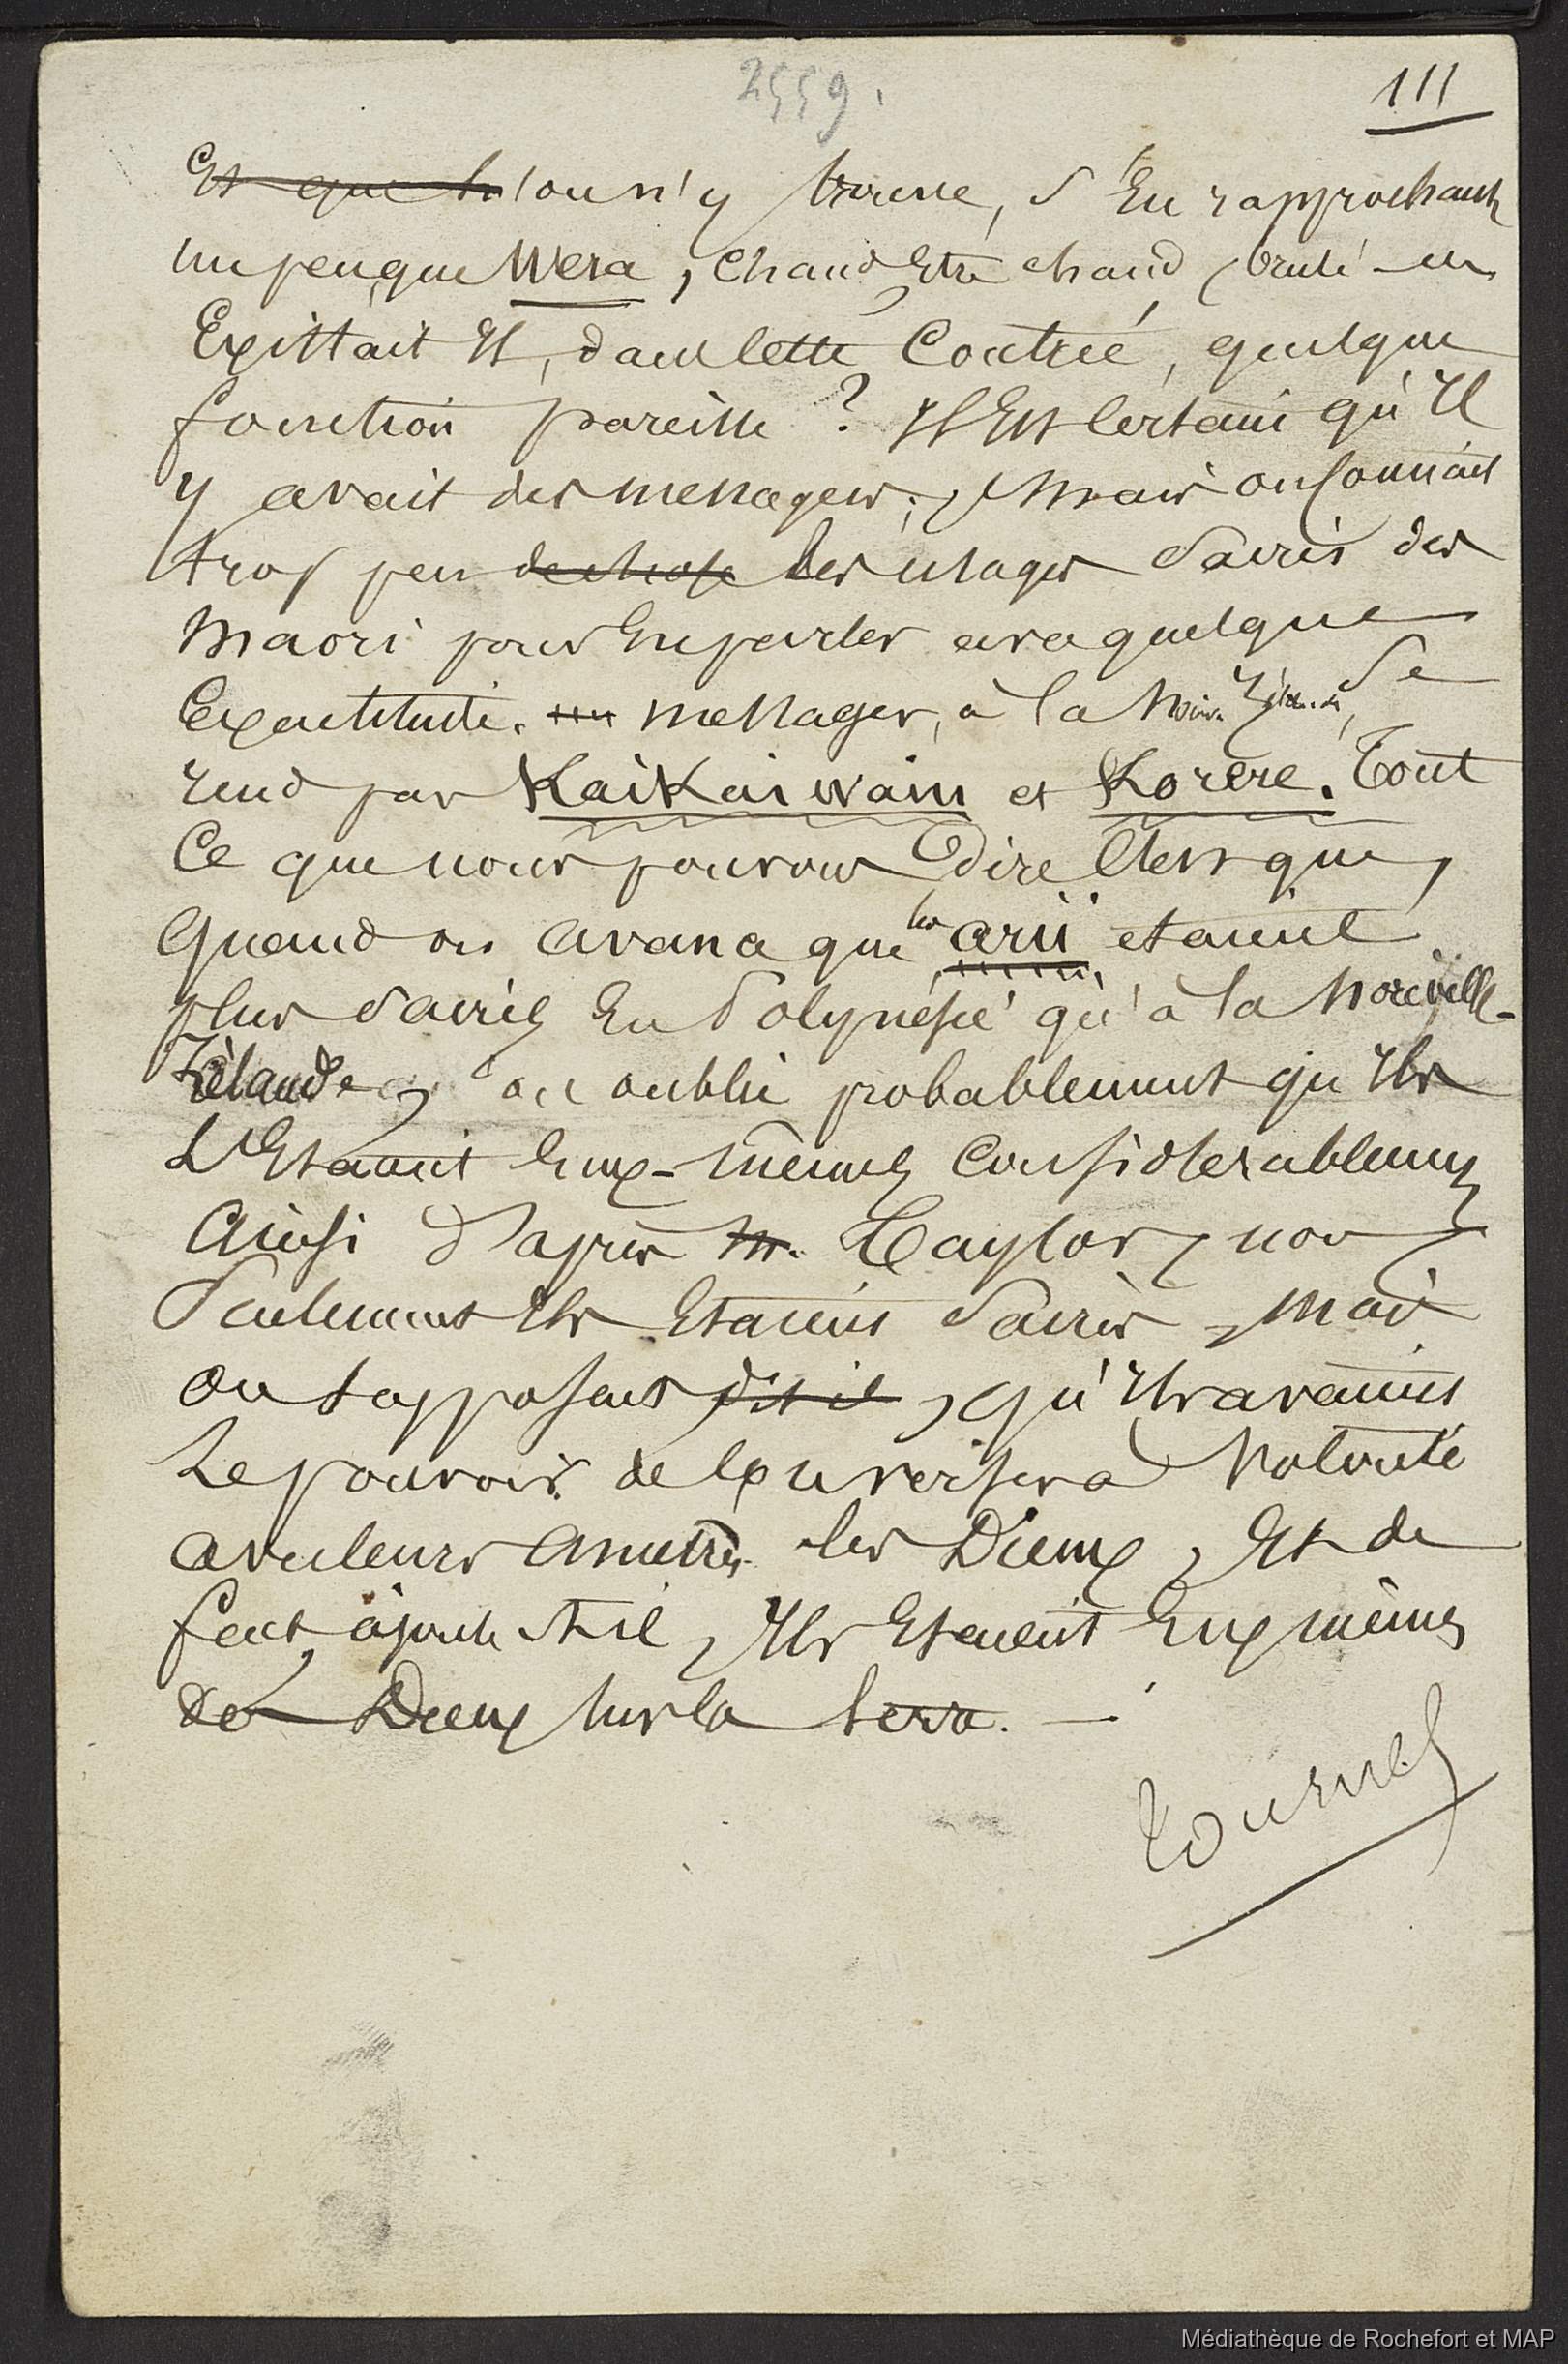 2559.
111
Et que l'on n'y trouve, s'en rapprochant
un peu, que Wera, chaud, être chaud, brulé - en
Existait il, dans cette Contrée, quelque
fonction pareille ? Il Est Certain qu'il
y avait des messagers ; mais on connait
trop peu de chose les usages Sacrés des
Maori pour En parler avec quelque
Exactitude. un messager, à la Nouv. Zélande, se
rend par KaiKaiwaiu et Korere. Tout
Ce que nous pouvons dire C'est que,
Quand on avança que les arii etaient
plus Sacrés En Polynésie qu'à la Nouvelle-
Zélande, on oublie probablement qu'ils
L'Etaient Eux-mêmes Considerablement
Ainsi d'après M. Taylor, non
Seulement ils Etaient Sacrés, mais
on supposait dit il, qu'ils avaient
Le pouvoir de converser à Volonté
avec leurs ancêtres les Dieux, Et de
fait, ajoute t-il, Ils Etaient Eux mêmes
des Dieux sur la terre. —
tournez
Médiathèque de Rochefort et MAP